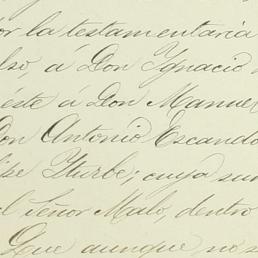 or la testamentaria
lso, á Don Ygnacio
éste á Don Manuel
Don Antonio Escando
ipe Yturbe; cuya sum
el Señor Malo, dentro
Que aunque no s